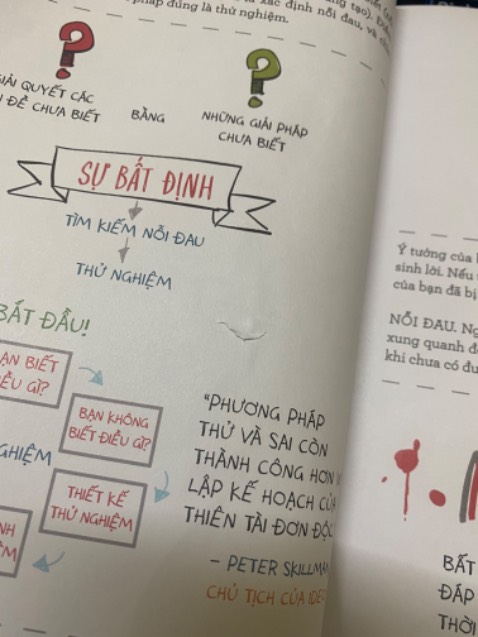 xác định nỗi đau, và
pháp đúng là thử nghiệm.
GIẢI QUYẾT CÁC
ĐỀ CHƯA BIẾT
BẰNG
NHỮNG GIẢI PHÁP
CHƯA BIẾT
SỰ BẤT ĐỊNH
TÌM KIẾM NỖI ĐAU
THỬ NGHIỆM
BẮT ĐẦU!
BẠN BIẾT
ĐIỀU GÌ?
BẠN KHÔNG
BIẾT ĐIỀU GÌ?
NGHIỆM
THIẾT KẾ
THỬ NGHIỆM
"PHƯƠNG PHÁP
THỬ VÀ SAI CÒN
THÀNH CÔNG HƠN
LẬP KẾ HOẠCH CỦA
THIÊN TÀI ĐƠN ĐỘC
- PETER SKILLMAN
CHỦ TỊCH CỦA IDEO
Ý tưởng của
sinh lời. Nếu
của bạn đã bị
NỖI ĐAU.
xung quanh
khi chưa có
BẤT
ĐÁP
THỜI